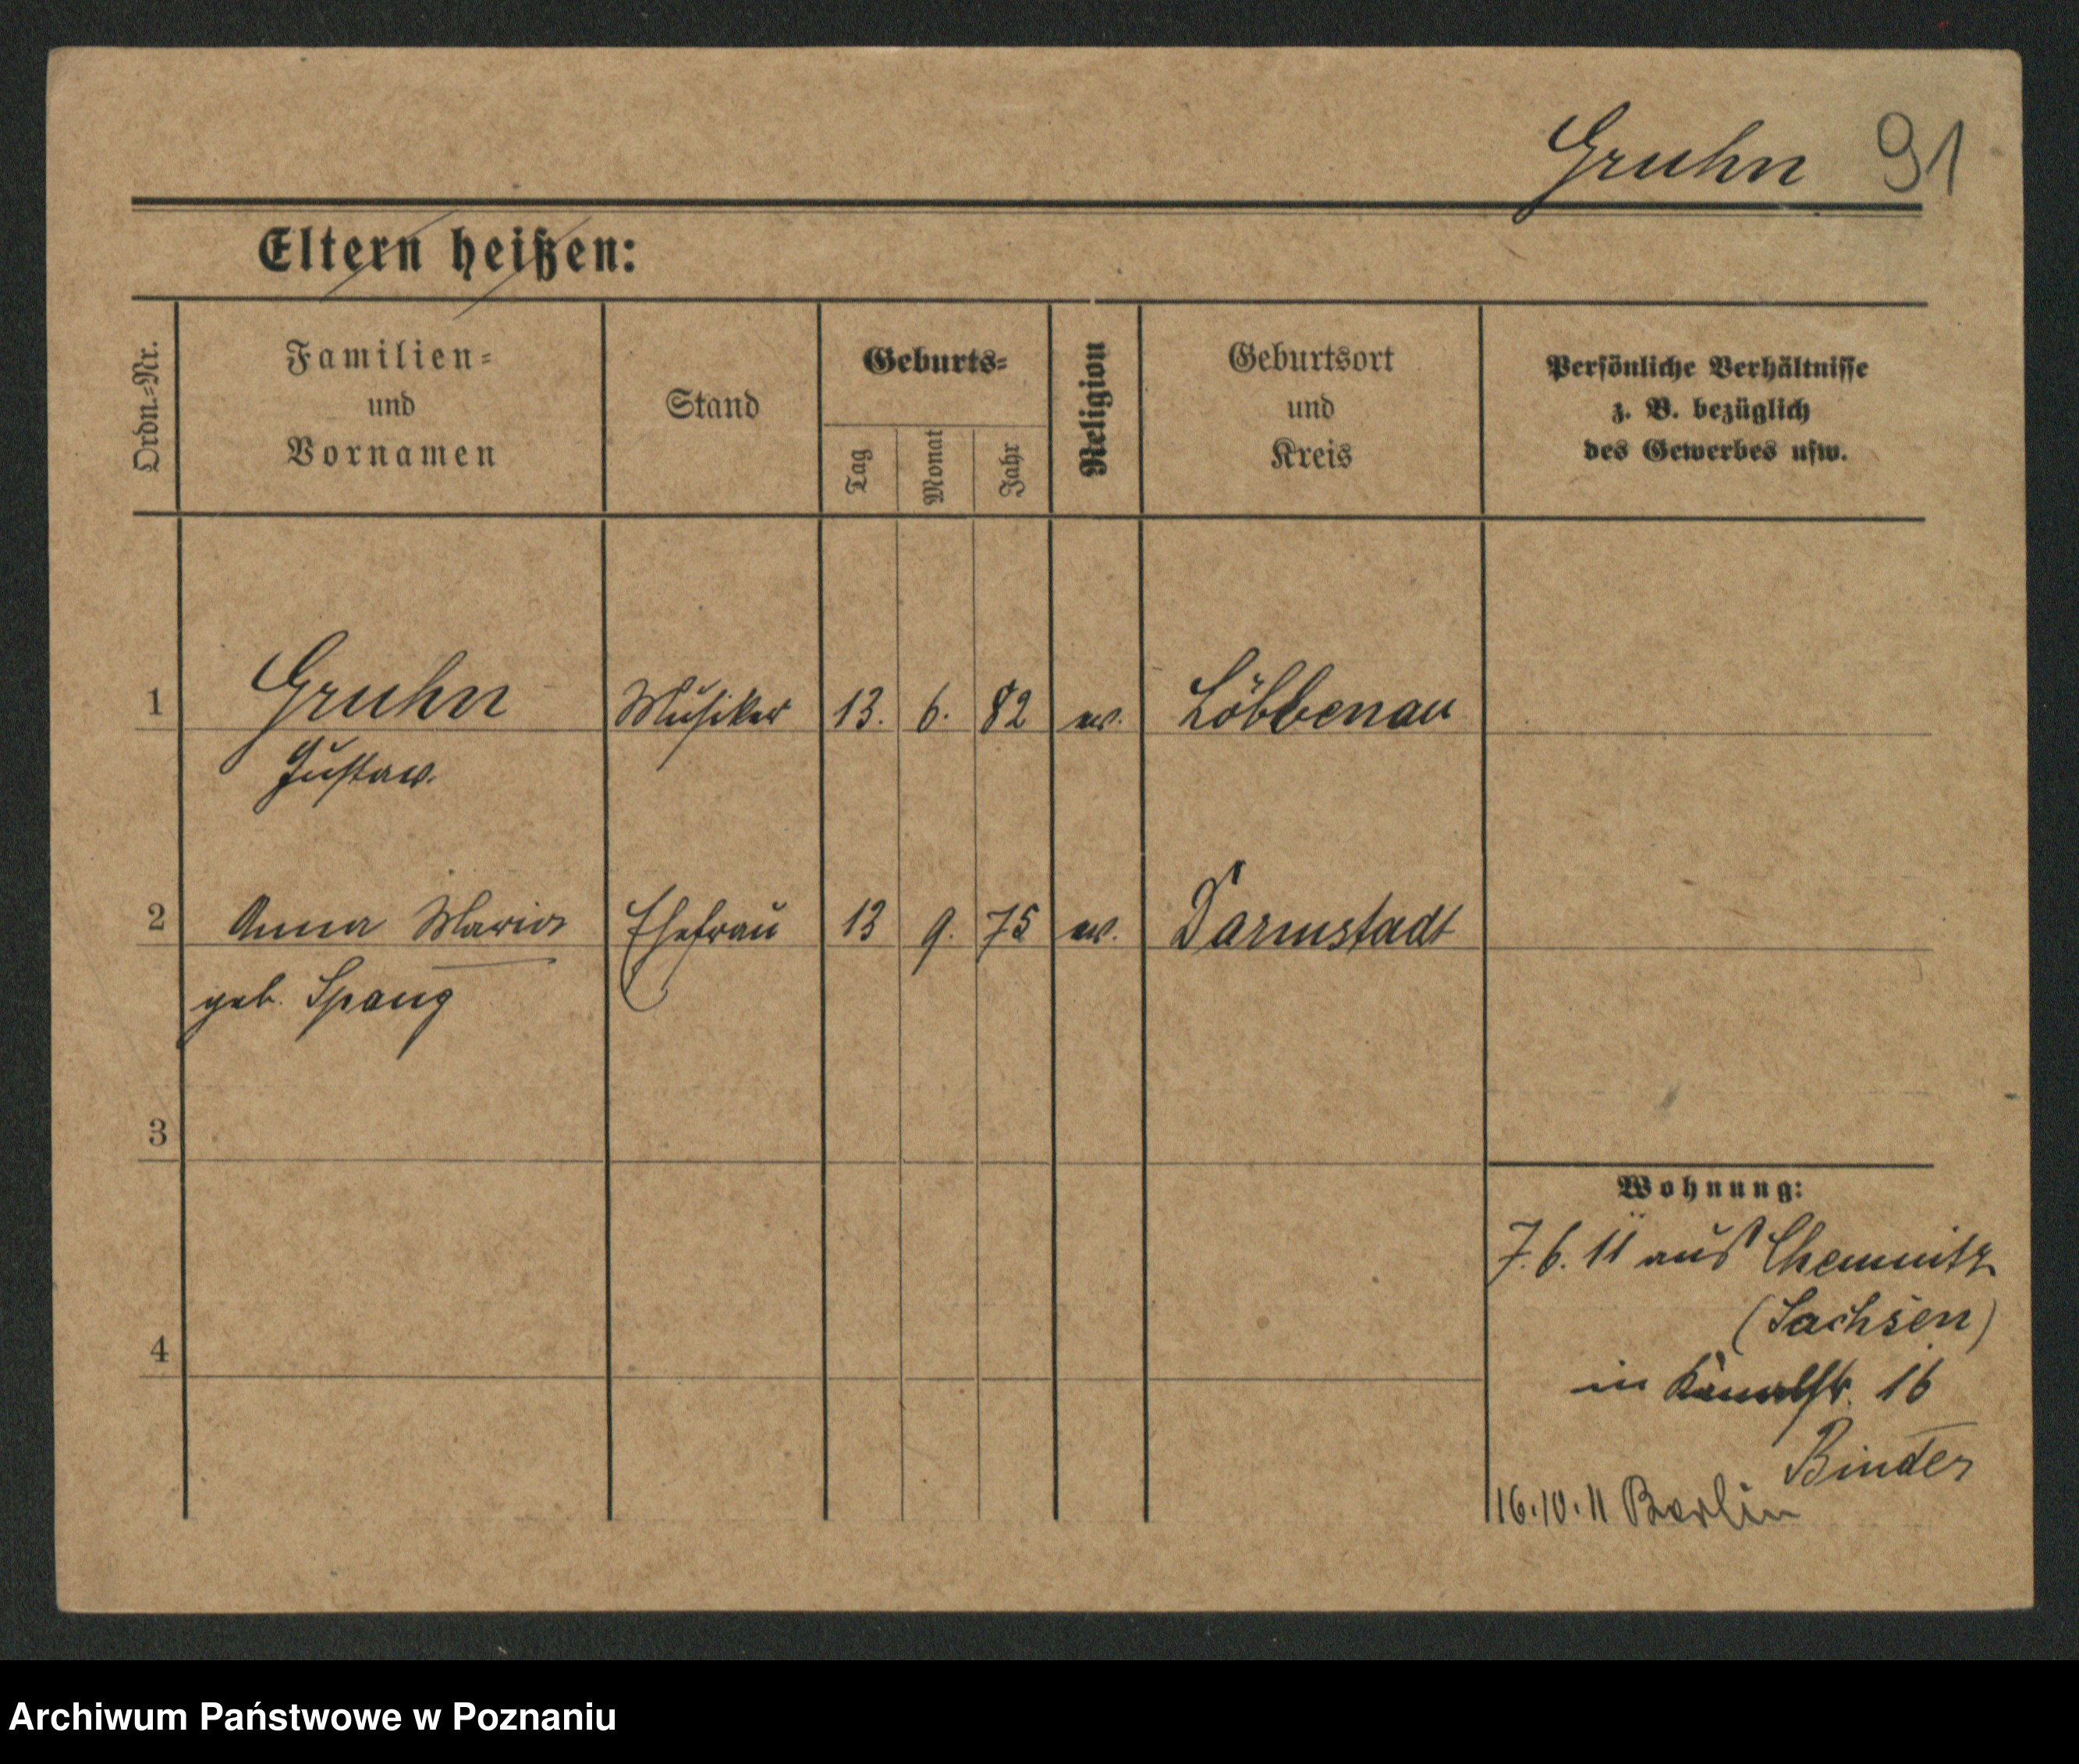 Gruhn 91
Eltern heißen:
Ordn.-Nr.
Familien-
und
Vornamen
Stand
Geburts-
Tag
Monat
Jahr
Religion
Geburtsort
und
Kreis
Persönliche Verhältnisse
z. B. bezüglich
des Gewerbes usw.
1 Gruhn Musiker 13. 6. 82 ev. Löbbenau
Gustav.
2 Anna Maria Ehefrau 13 9. 75 ev. Darmstadt
geb. Spang
3
Wohnung:
7. 6. 11 aus Chemnitz
(Sachsen)
4
in Kanalstr. 16
Binder
16.10.11 Berlin
Archiwum Państwowe w Poznaniu